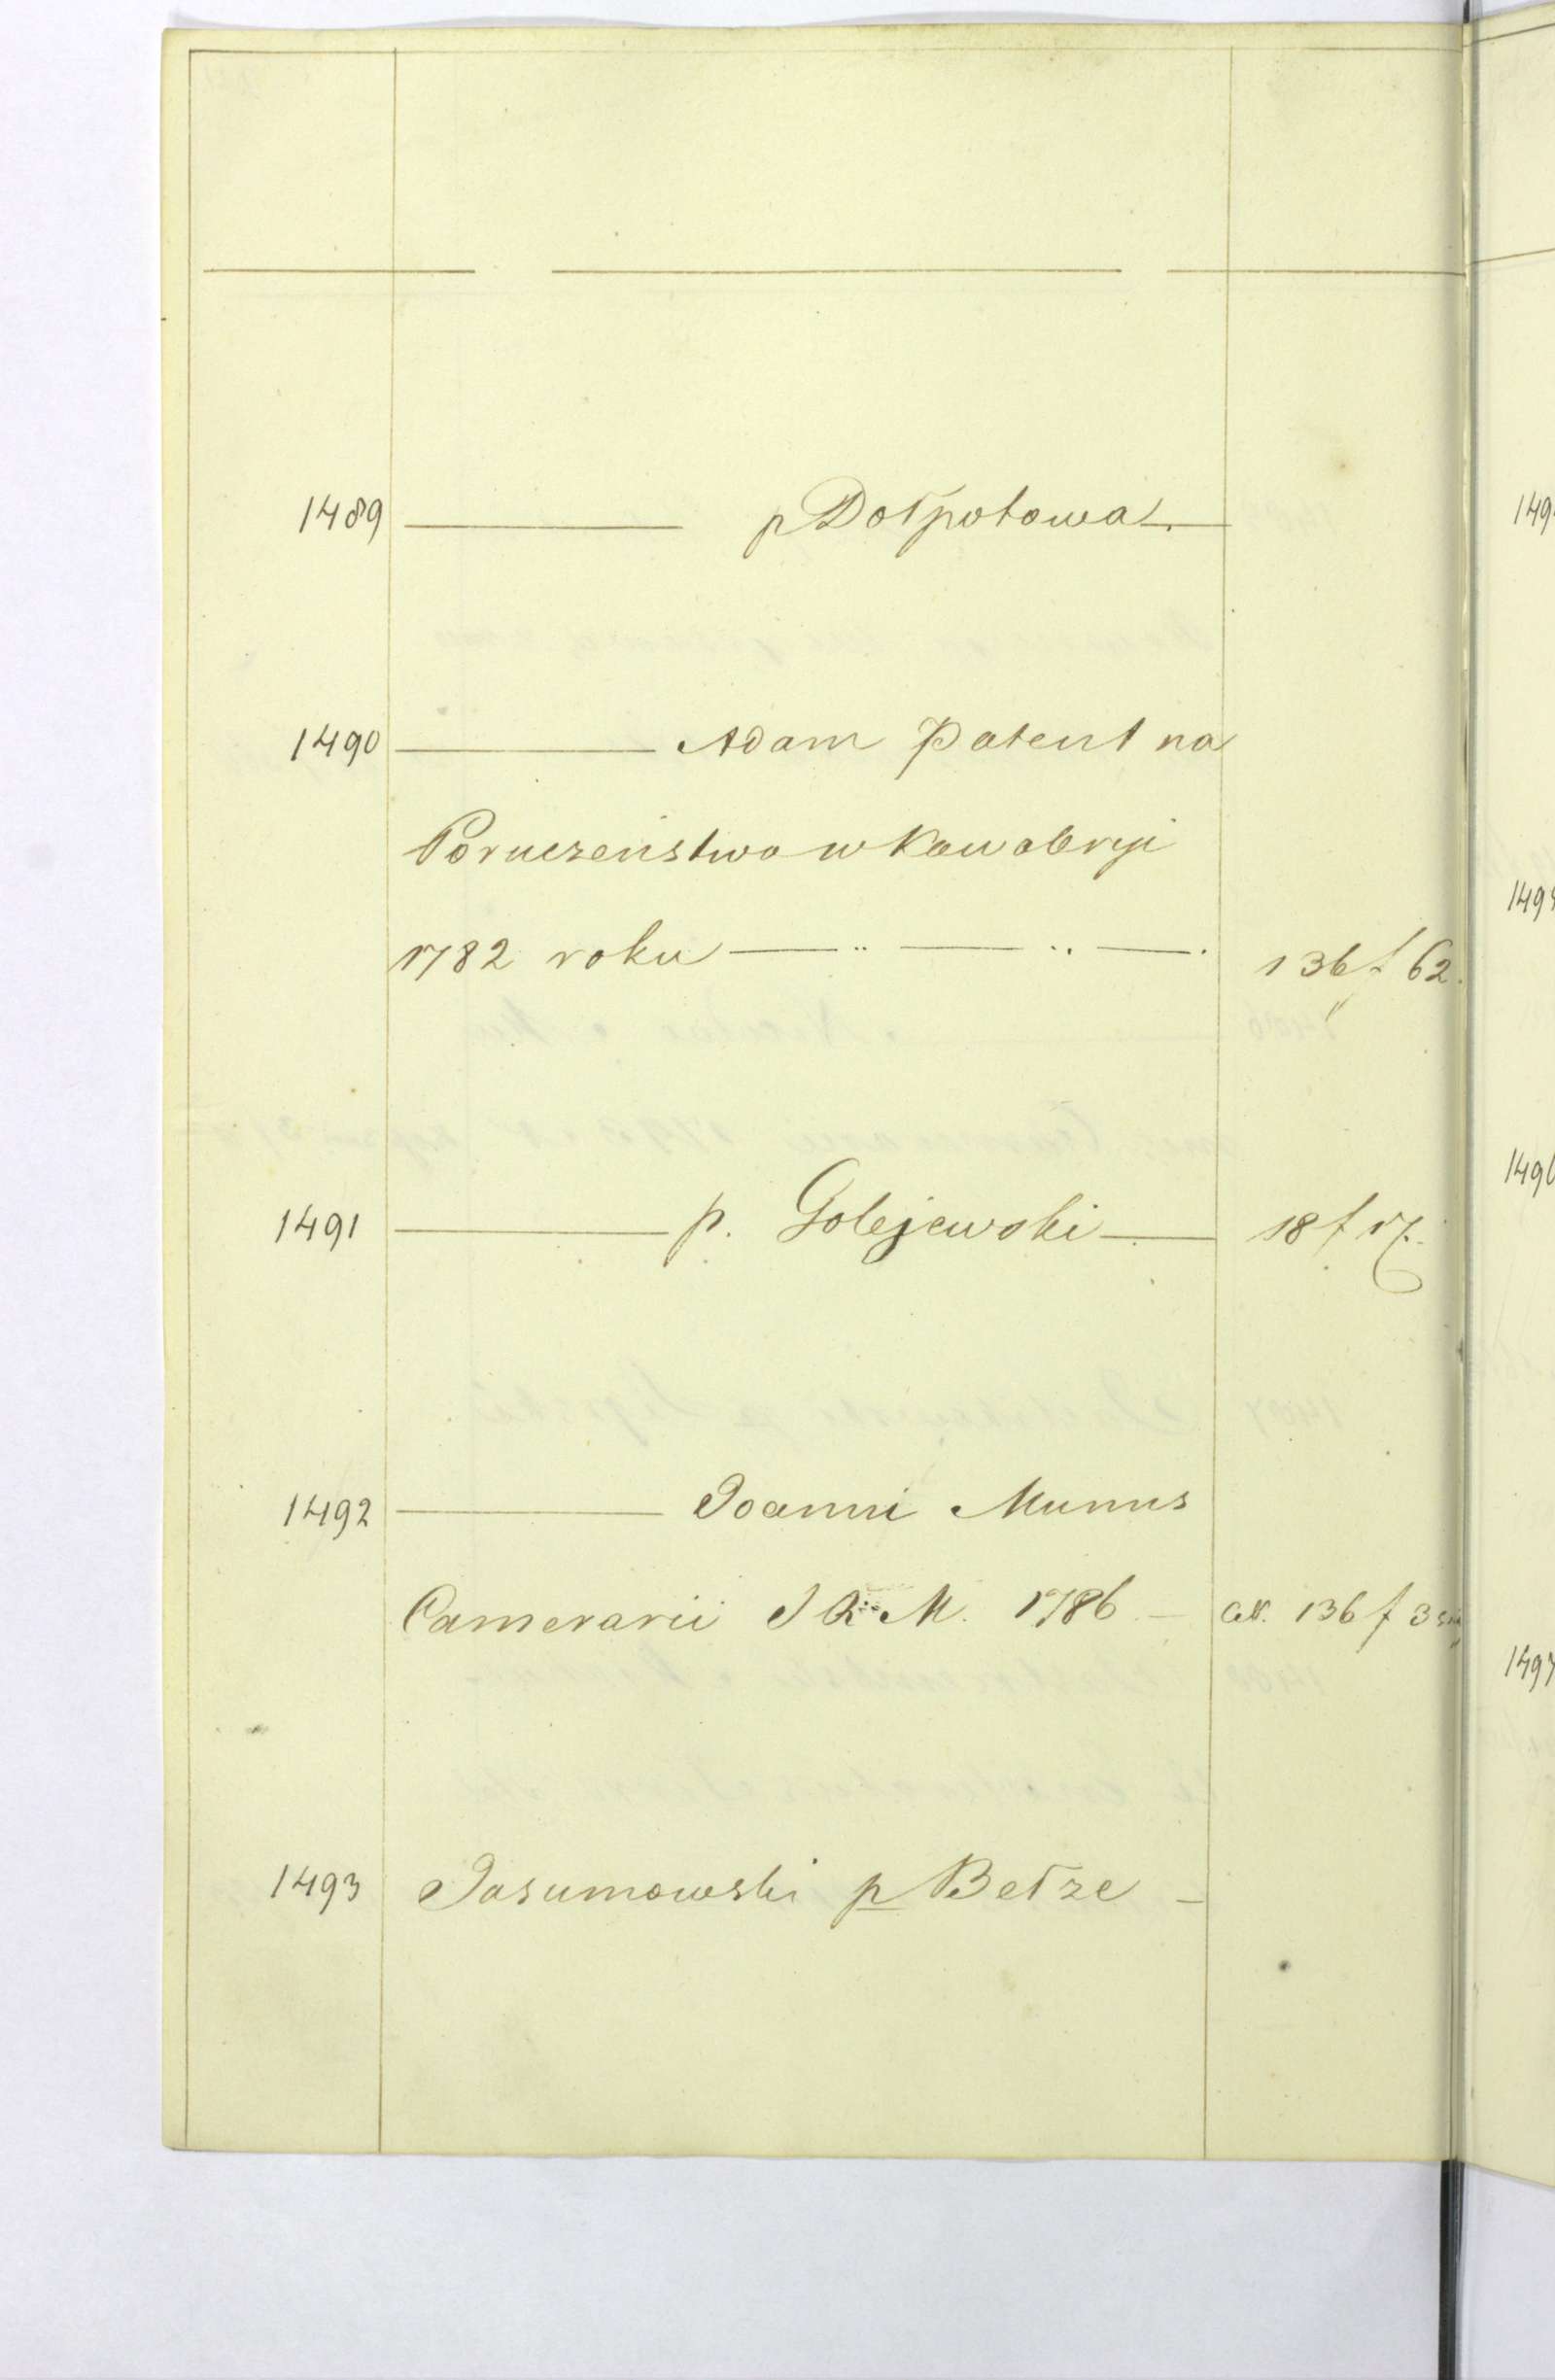 1489 ——— p Dołpotowa.
1490 ——— Adam Patent na
Poruczeństwo w Kawaleryi
1782 roku — .. — .. — . 136 f 62.
1491 ——— p. Golejewski — 18 f 17.
1492 ——— Joanni Munus
Camerarii S R M. 1786 — 136 f 3
1493 Jasumowski p Bełze —
149
149
1496
1497